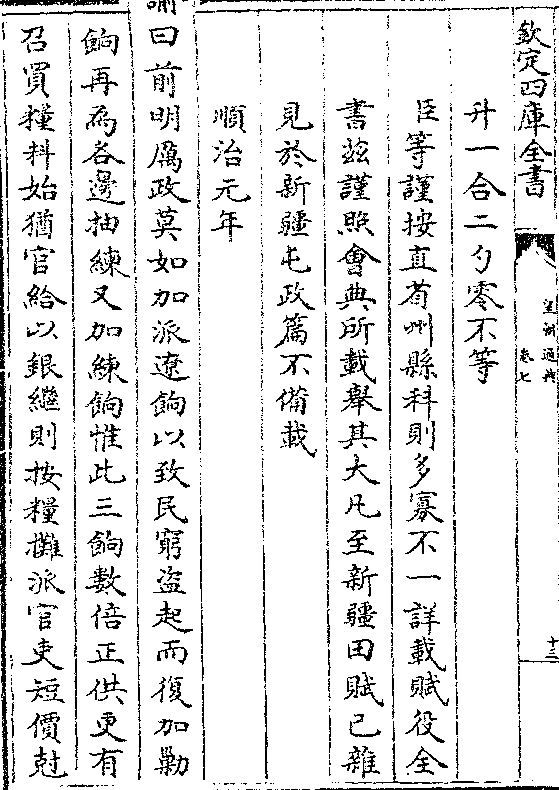 欽定四庫全書
皇朝通典
卷七
十三
升一合二勺零不等
臣等謹按直省州縣科則多寡不一詳載賦役全
書玆謹照會典所載舉其大凡至新疆田賦已雜
見於新疆屯政篇不備載
順治元年
諭曰前明厲政莫如加派遼餉以致民窮盗起而復加勦
餉再為各邊抽練又加練餉惟此三餉數倍正供更有
召買糧料始猶官給以銀繼則按糧攤派官吏短價尅